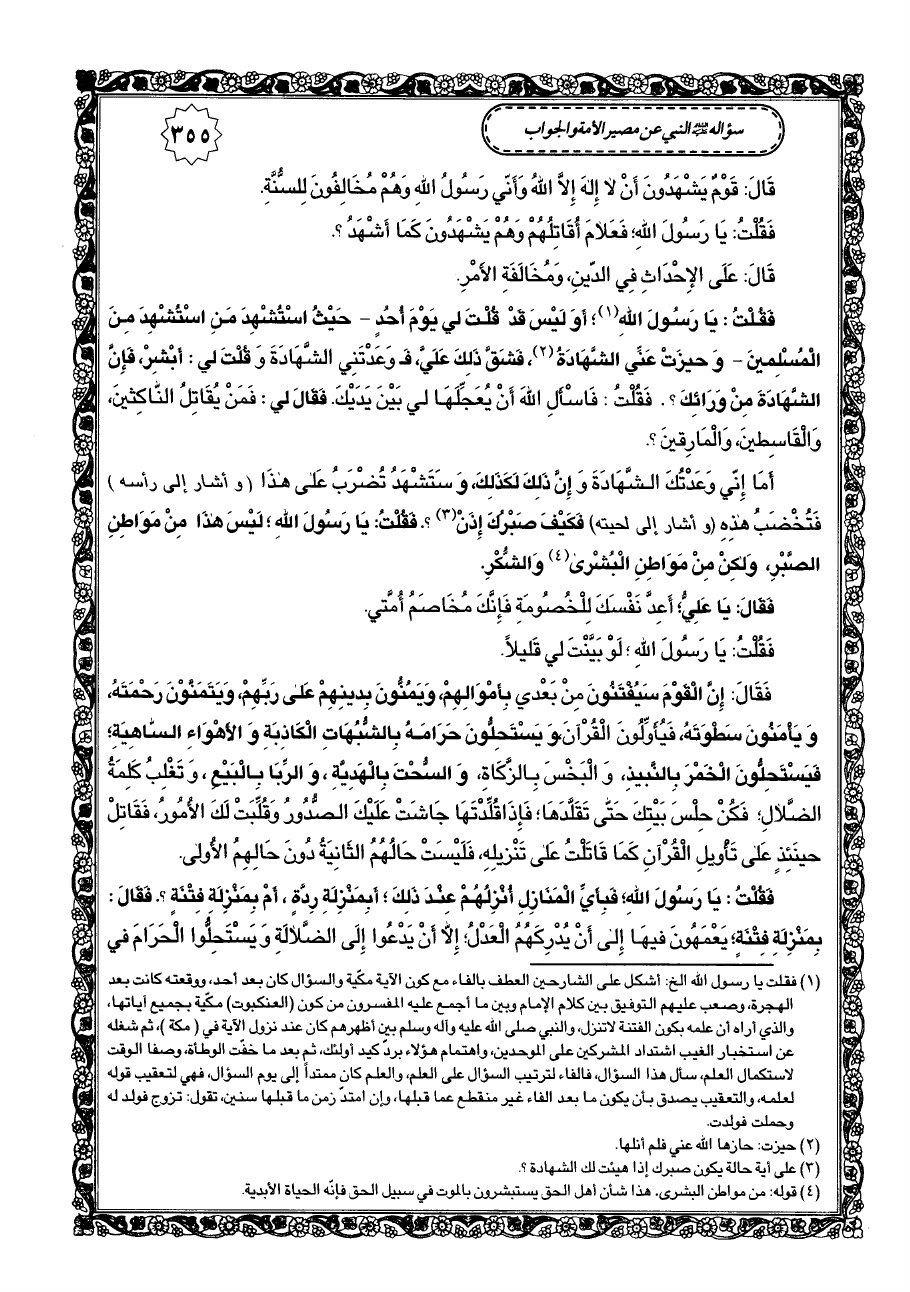 سؤاله ﷺ النبي عن مصير الأمة والجواب
٣٥٥
قَالَ: قَوْمٌ يَشْهَدُونَ أَنْ لاَ إِلٰهَ إِلاَّ اللهُ وَأَنّي رَسُولُ اللهِ وَهُمْ مُخَالِفُونَ لِلسُّنَّةِ.
فَقُلْتُ: يَا رَسُولَ اللهِ؛ فَعَلاَمَ أُقَاتِلُهُمْ وَهُمْ يَشْهَدُونَ كَمَا أَشْهَدُ ؟.
قَالَ: عَلَى الإِحْدَاثِ فِي الدّينِ، وَمُخَالَفَةِ الأَمْرِ.
فَقُلْتُ: يَا رَسُولَ اللهِ(١)؛ أَوَ لَيْسَ قَدْ قُلْتَ لي يَوْمَ أُحُدٍ - حَيْثُ اسْتُشْهِدَ مَنِ اسْتُشْهِدَ مِنَ
الْمُسْلِمينَ - وَ حيزَتْ عَنِّي الشَّهَادَةُ(٢)، فَشَقَّ ذَلِكَ عَلَيَّ، فَـوَعَدْتَني الشَّهَادَةَ وَ قُلْتَ لي: أَبْشِرْ، فَإِنَّ
الشَّهَادَةَ مِنْ وَرَائِكَ ؟. فَقُلْتُ: فَاسْأَلِ اللهَ أَنْ يُعَجِّلَهَا لي بَيْنَ يَدَيْكَ. فَقَالَ لي: فَمَنْ يُقَاتِلُ النَّاكِثينَ،
وَالْقَاسِطينَ، وَالْمَارِقينَ ؟.
أَمَا إِنّي وَعَدْتُكَ الشَّهَادَةَ وَ إِنَّ ذَلِكَ لَكَذَلِكَ، وَ سَتَشْهَدُ تُضْرَبُ عَلٰى هٰذَا (و أشار إلى رأسه)
فَتُخْضَبُ هٰذِهِ (و أشار إلى لحيته) فَكَيْفَ صَبْرُكَ إِذَنْ(٣) ؟. فَقُلْتُ: يَا رَسُولَ اللهِ؛ لَيْسَ هٰذَا مِنْ مَوَاطِنِ
الصَّبْرِ، وَلٰكِنْ مِنْ مَوَاطِنِ الْبُشْرىٰ(٤) وَالشُّكْرِ.
فَقَالَ: يَا عَلِيُّ؛ أَعِدَّ نَفْسَكَ لِلْخُصُومَةِ فَإِنَّكَ مُخَاصِمُ أُمَّتي.
فَقُلْتُ: يَا رَسُولَ اللهِ؛ لَوْ بَيَّنْتَ لي قَليلاً.
فَقَالَ: إِنَّ الْقَوْمَ سَيُفْتَنُونَ مِنْ بَعْدي بِأَمْوَالِهِمْ، وَيَمُنُّونَ بِدينِهِمْ عَلىٰ رَبِّهِمْ، وَيَتَمَنَّوْنَ رَحْمَتَهُ،
وَ يَأْمَنُونَ سَطْوَتَهُ، فَيُأَوِّلُونَ الْقُرْآنَ، وَ يَسْتَحِلُّونَ حَرَامَهُ بِالشُّبُهَاتِ الْكَاذِبَةِ وَ الأَهْوَاءِ السَّاهِيَةِ؛
فَيَسْتَحِلُّونَ الْخَمْرَ بِالنَّبيذِ، وَ الْبَخْسَ بِالزَّكَاةِ، وَ السُّحْتَ بِالْهَدِيَّةِ، وَ الرِّبَا بِالْبَيْعِ، وَ تَغْلِبُ كَلِمَةُ
الضَّلاَلِ؛ فَكُنْ حِلْسَ بَيْتِكَ حَتّٰى تَقَلَّدَهَا؛ فَإِذَا قُلِّدْتَهَا جَاشَتْ عَلَيْكَ الصُّدُورُ وَقُلِّبَتْ لَكَ الأُمُورُ، فَقَاتِلْ
حينَئِذٍ عَلىٰ تَأْويلِ الْقُرْآنِ كَمَا قَاتَلْتَ عَلىٰ تَنْزيلِهِ، فَلَيْسَتْ حَالُهُمُ الثَّانِيَةُ دُونَ حَالِهِمُ الأُولىٰ.
فَقُلْتُ: يَا رَسُولَ اللهِ؛ فَبِأَيِّ الْمَنَازِلِ أُنْزِلُهُمْ عِنْدَ ذَلِكَ؛ أَبِمَنْزِلَةِ رِدَّةٍ، أَمْ بِمَنْزِلَةِ فِتْنَةٍ ؟. فَقَالَ:
بِمَنْزِلَةِ فِتْنَةٍ؛ يَعْمَهُونَ فيهَا إِلىٰ أَنْ يُدْرِكَهُمُ الْعَدْلُ؛ إِلاَّ أَنْ يَدْعُوا إِلَى الضَّلاَلَةِ وَ يَسْتَحِلُّوا الْحَرَامَ في
(١) فقلت يا رسول الله الخ: أشكل على الشارحين العطف بالفاء مع كون الآية مكّية والسؤال كان بعد أحد، ووقعته كانت بعد
الهجرة، وصعب عليهم التوفيق بين كلام الإمام وبين ما أجمع عليه المفسرون من كون (العنكبوت) مكّية بجميع آياتها،
والذي أراه أن علمه بكون الفتنة لاتنزل، والنبي صلى الله عليه وآله وسلم بين أظهرهم كان عند نزول الآية في (مكة)، ثم شغله
عن استخبار الغيب اشتداد المشركين على الموحدين، واهتمام هؤلاء بردّ كيد أولئك، ثم بعد ما خفّت الوطأة، وصفا الوقت
لاستكمال العلم، سأل هذا السؤال، فالفاء لترتيب السؤال على العلم، والعلم كان ممتداً إلى يوم السؤال، فهي لتعقيب قوله
لعلمه، والتعقيب يصدق بأن يكون ما بعد الفاء غير منقطع عما قبلها، وإن امتدّ زمن ما قبلها سنين، تقول: تزوج فولد له
وحملت فولدت.
(٢) حيزت: حازها الله عني فلم أنلها.
(٣) على أية حالة يكون صبرك إذا هيئت لك الشهادة ؟.
(٤) قوله: من مواطن البشرى. هذا شأن أهل الحق يستبشرون بالموت في سبيل الحق فإنّه الحياة الأبدية.